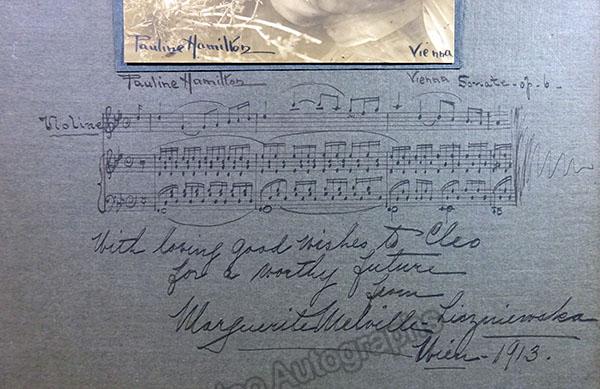 Pauline Hamilton Vienna
Pauline Hamilton Vienna Sonate - op. 6 -
Violine
With loving good wishes to Cleo
for a worthy future
from
Marguerite Melville-Liszniewska
Wien - 1913.
Autographs